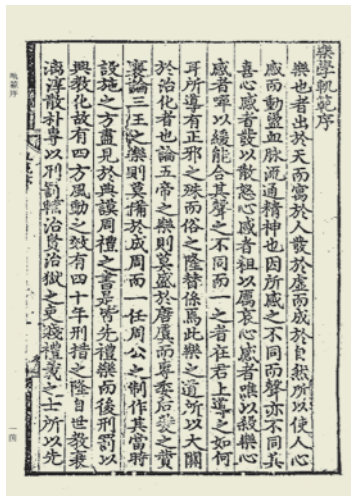 樂學軌範序
樂也者出於天而寓於人發於虛而成於自然所以使人心
感而動盪血脈流通精神也因所感之不同而聲亦不同其
喜心感者發以散怒心感者粗以厲哀心感者噍以殺樂心
感者嘽以緩能合其聲之不同而一之者在君上導之如何
耳所導有正邪之殊而俗之隆替係焉此樂之道所以大關
於治化者也論五帝之樂則莫盛於唐虞而專委后夔之贊
襄論三王之樂則莫備於成周而一任周公之制作其當時
設施之方盡見於典謨周禮之書皆先禮樂而後刑罰以
興敎化故有四方風動之效有四十年刑措之隆自世敎衰
漓淳散朴專以刑罰贍治賢治獄之吏賤禮義之士所以先
軌範序